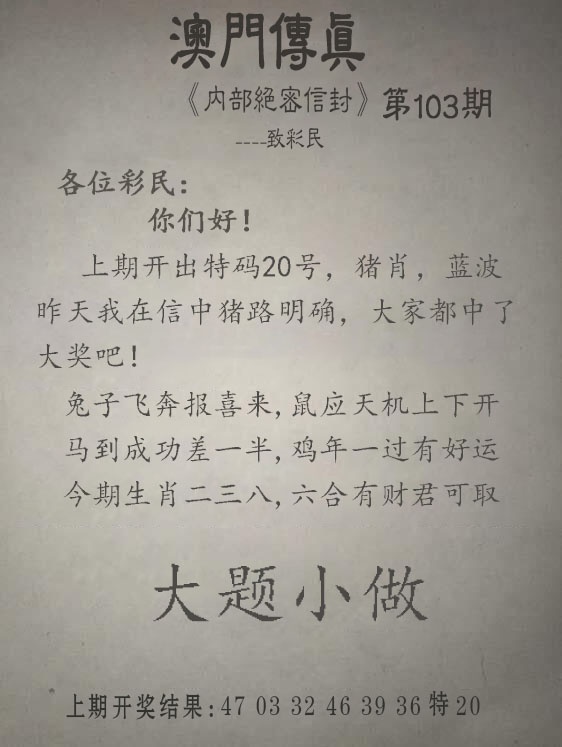 澳門傳真
《内部絕密信封》第103期
----致彩民
各位彩民：
你们好！
上期开出特码20号，猪肖，蓝波
昨天我在信中猪路明确，大家都中了
大奖吧！
兔子飞奔报喜来,鼠应天机上下开
马到成功差一半,鸡年一过有好运
今期生肖二三八,六合有财君可取
大题小做
上期开奖结果:47 03 32 46 39 36 特 20